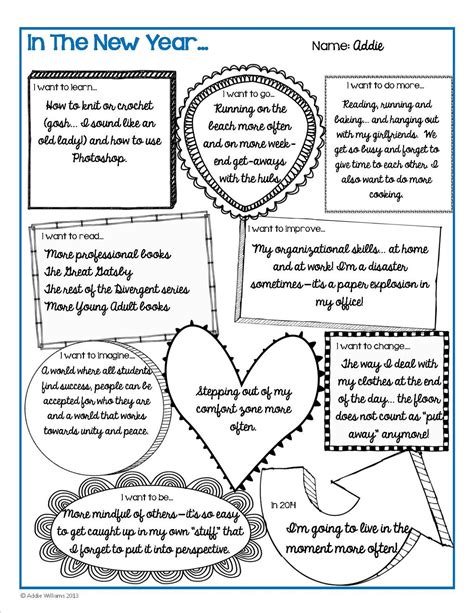 In The New Year...
Name: Addie
I want to learn...
How to knit or crochet
(gosh... I sound like an
old lady!) and how to use
Photoshop.
I want to go...
Running on the
beach more often
and on more week-
end get-aways
with the hubs.
I want to do more...
Reading, running and
baking... and hanging out
with my girlfriends. We
get so busy and forget to
give time to each other. I
also want to do more
cooking.
I want to read...
More professional books
The Great Gatsby
The rest of the Divergent series
More Young Adult books
I want to improve...
My organizational skills... at home
and at work! I'm a disaster
sometimes-it's a paper explosion in
my office!
I want to imagine...
A world where all students
find success, people can be
accepted for who they are
and a world that works
towards unity and peace.
Stepping out of my
comfort zone more
often.
I want to change...
The way I deal with
my clothes at the end
of the day... the floor
does not count as "put
away" anymore!
I want to be...
More mindful of others-it's so easy
to get caught up in my own "stuff" that
I forget to put it into perspective.
In 2014
I'm going to live in the
moment more often!
© Addie Williams 2013